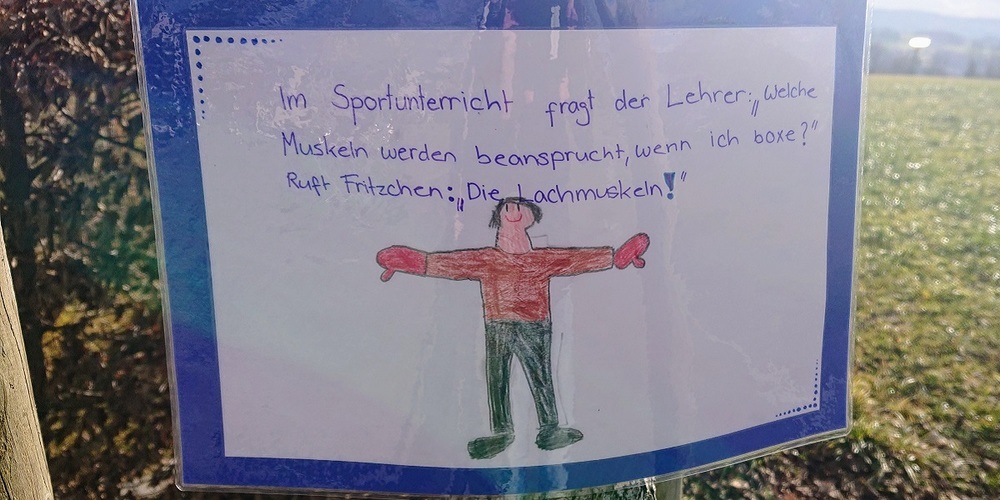 Im Sportunterricht fragt der Lehrer: „Welche
Muskeln werden beansprucht, wenn ich boxe?“
Ruft Fritzchen: „Die Lachmuskeln!“